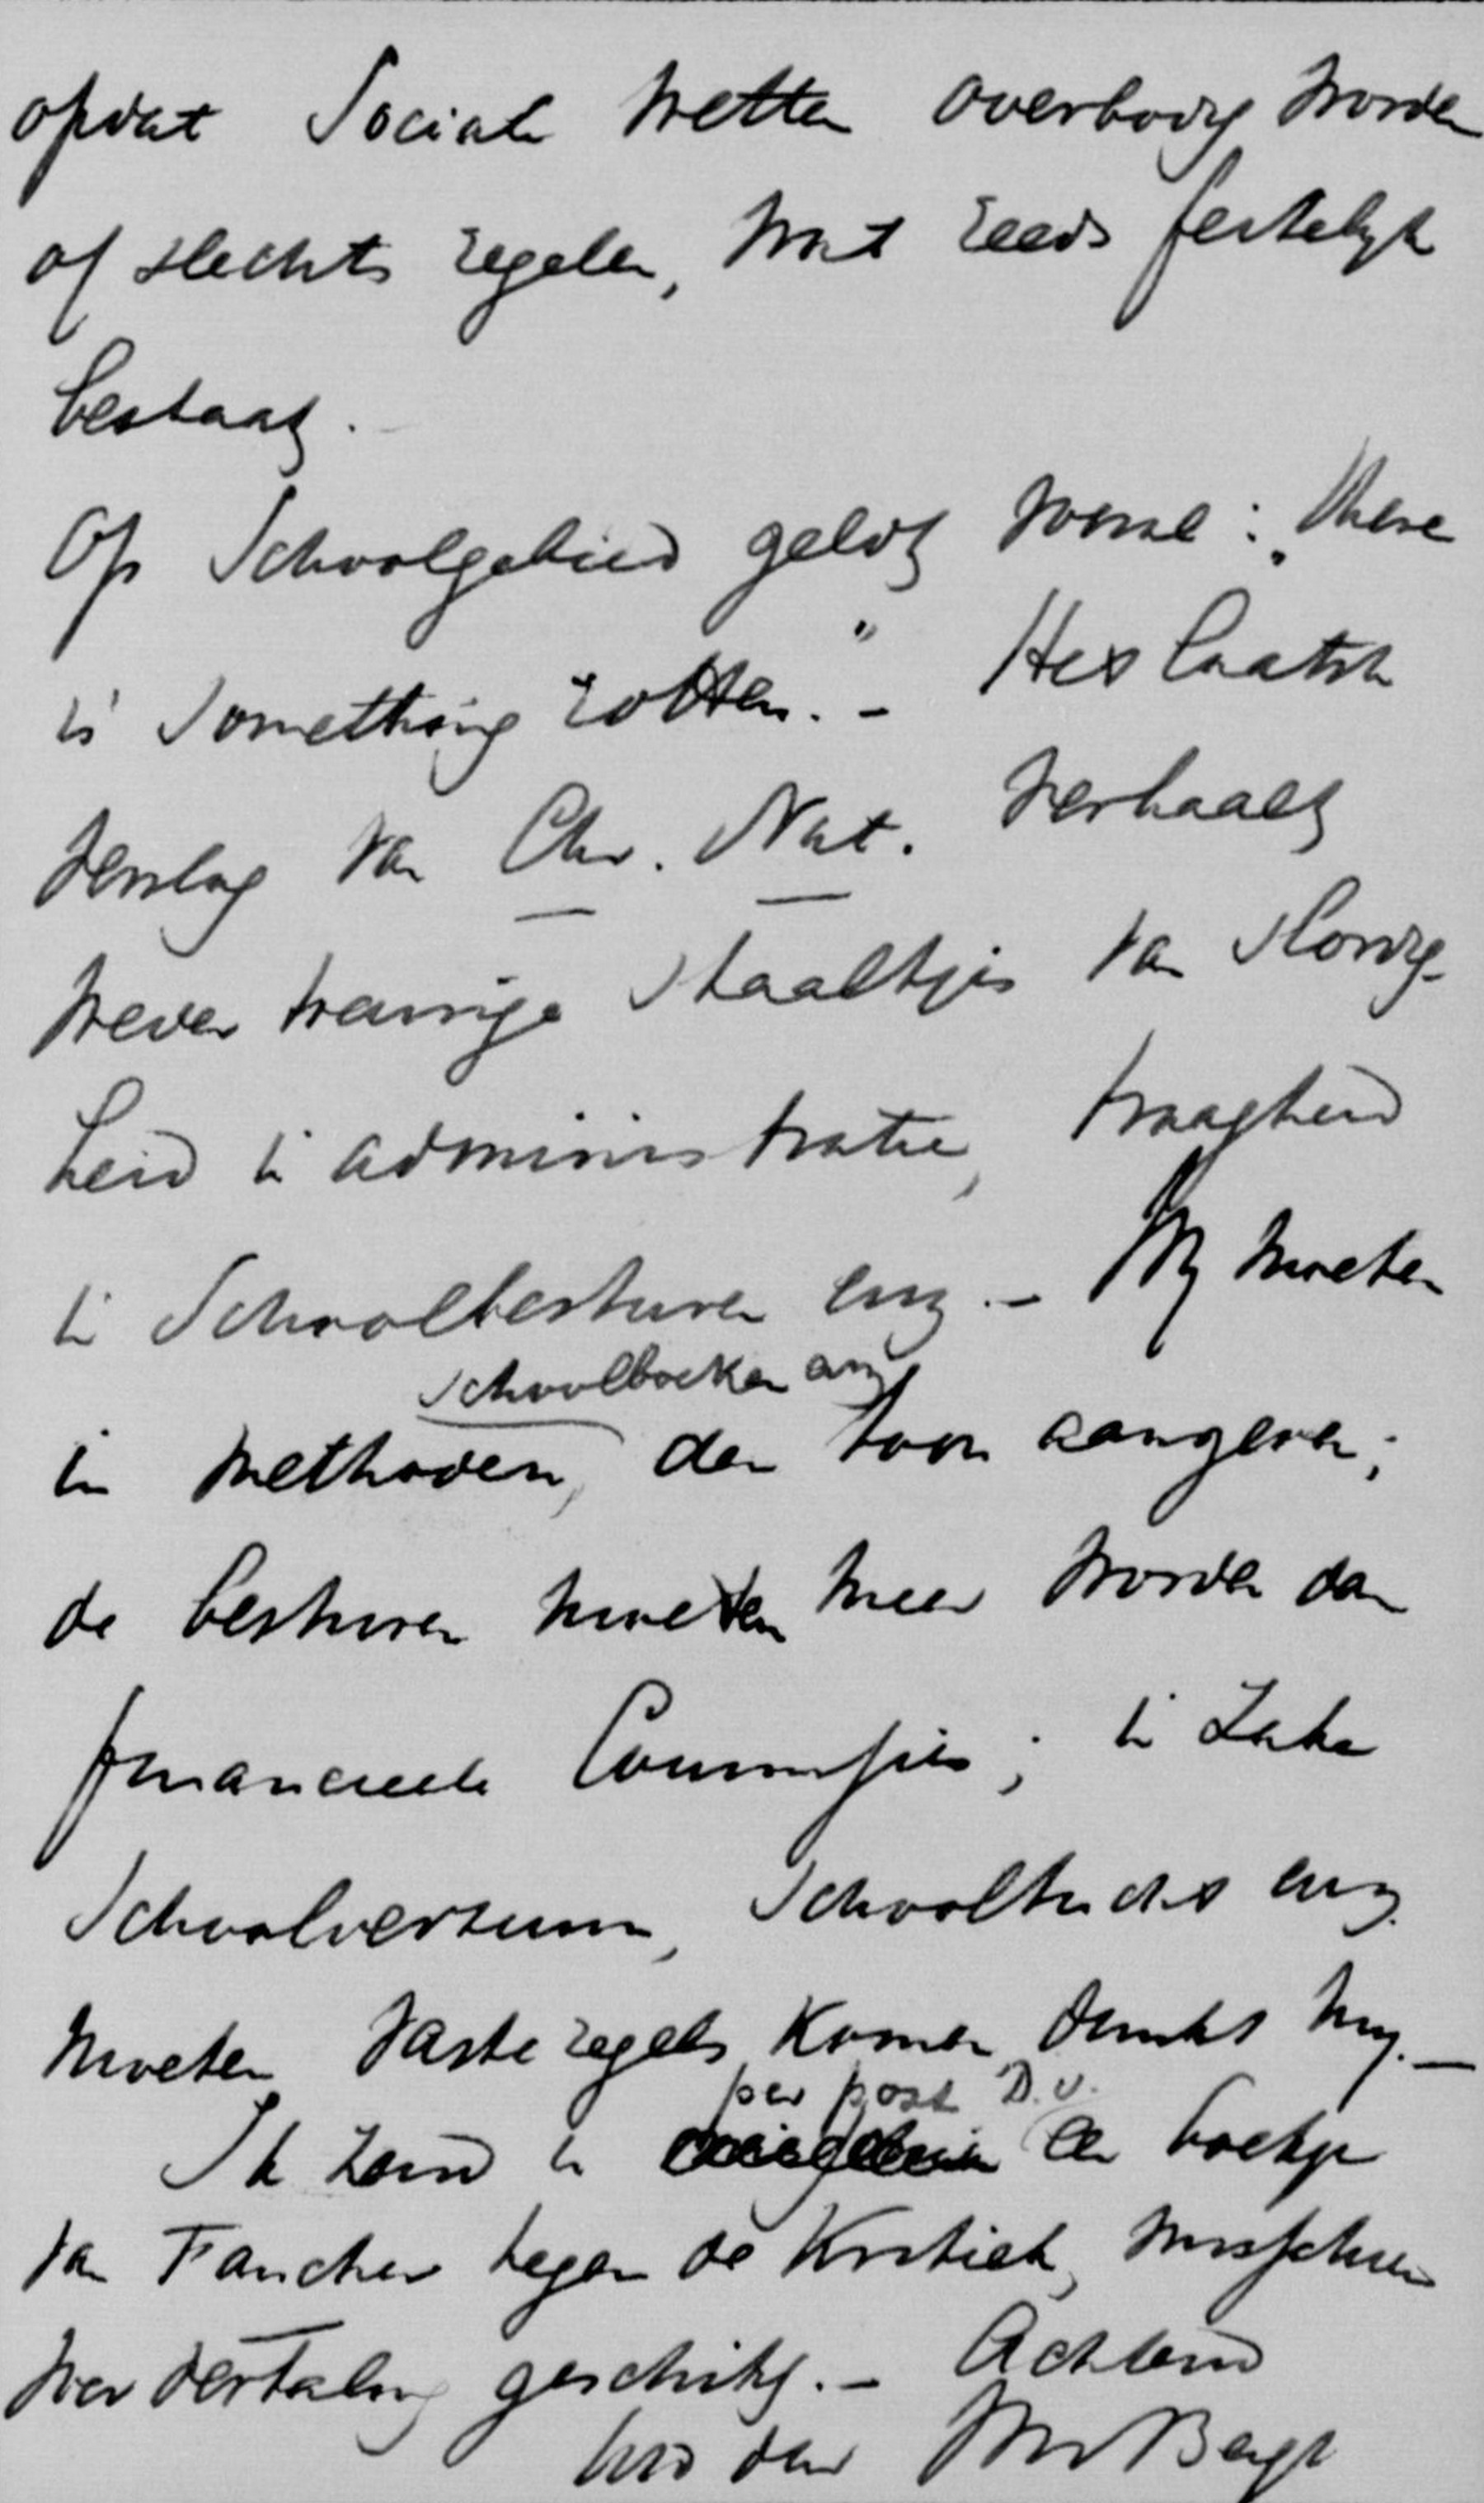 opdat Sociale wetten overbodig worden
of slechts regelen, wat reeds feitelijk
bestaat.
Op Schoolgebied geldt soms: "There
is something rotten." - Het laatste
verslag van Chr. Nat. verhaalt
weer treurige staaltjes van slordig-
heid in administratie, traagheid
in Schoolbesturen enz. - Wij moeten
schoolboeken enz
in methoden, den toon aangeven;
de besturen moeten meer worden dan
financieele Commissies; in zake
Schoolverzuim, Schooltucht enz.
moeten vaste regels komen dunkt mij. -
per post D.V.
Ik zend u een boekje
van Faucher tegen de Kritiek, misschien
ter vertaling geschikt. - Achtend
uw dw